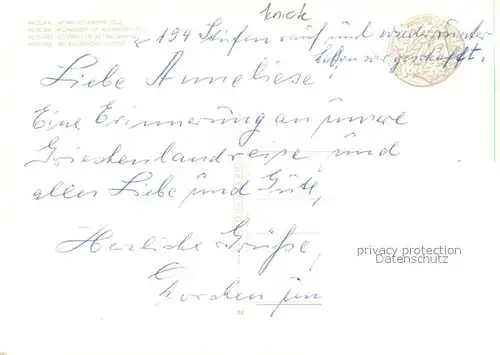 knick
194 Stufen rauf und wieder runter
haben wir geschafft.
Liebe Anneliese!
Eine Erinnerung an unsere
Griechenlandreise und
alles Liebe und Gute,
Herzliche Grüße,
privacy protection
Datenschutz